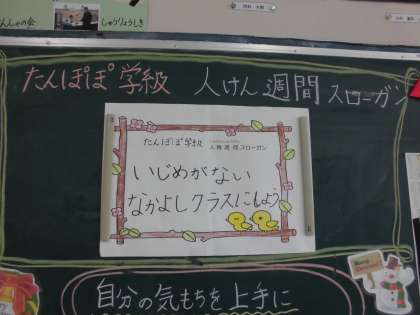 しゃの会
しゅうりょうしき
たんぽぽ学級 人けん週間スローガン
たんぽぽ学級 人権週間スローガン
いじめがない
なかよしクラスにしよう
自分の気もちを上手に